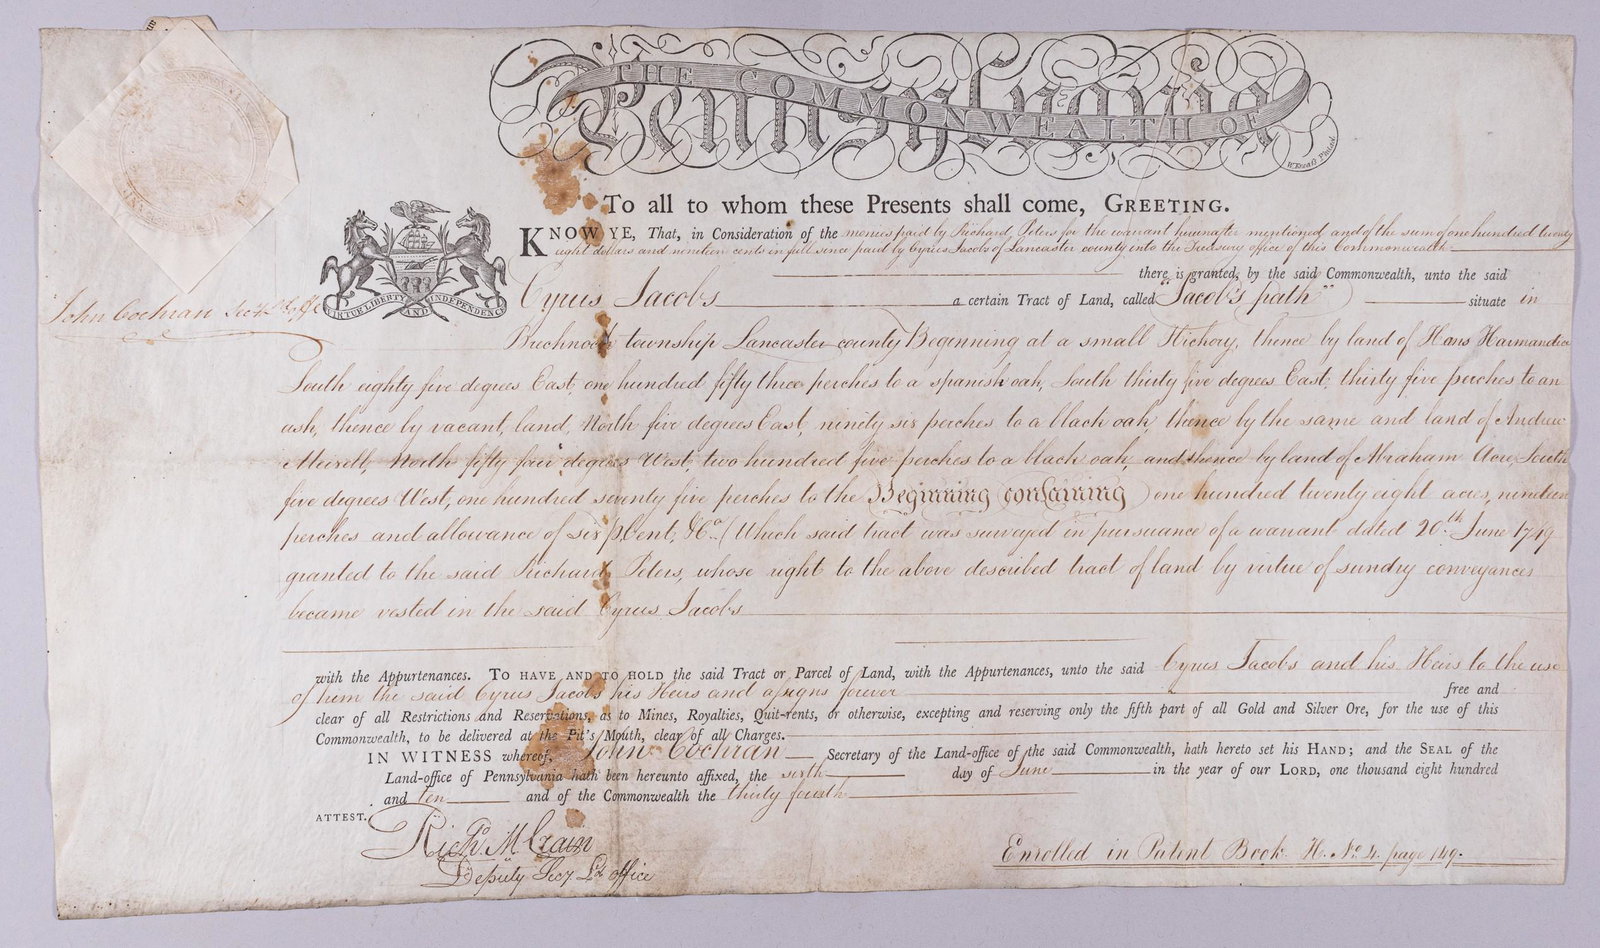 THE COMMONWEALTH OF
Pennsylvania
To all to whom these Presents shall come, GREETING.
KNOW YE, That, in Consideration of the monies paid by Richard Peters for the warrant hereinafter mentioned and of the sum of one hundred twenty
eight dollars and nineteen cents in full since paid by Cyrus Jacobs of Lancaster county into the Treasury office of this Commonwealth
there is granted, by the said Commonwealth, unto the said
Cyrus Jacobs a certain Tract of Land, called "Jacob's path" situate in
VIRTUE LIBERTY AND INDEPENDENCE
John Cochran Secy Ld office
township Lancaster county Beginning at a small Hickory, thence by land of Hans
South eighty five degrees East, one hundred fifty three perches to a spanish oak, South thirty five degrees East, thirty five perches to an
ash, thence by vacant, land, North five degrees East, ninety six perches to a black oak, thence by the same and land of Andrew
North fifty four degrees West, two hundred five perches to a black oak, and thence by land of Abraham South
five degrees West, one hundred seventy five perches to the Beginning containing one hundred twenty eight acres, nineteen
perches and allowance of six p Cent, &Ca. (Which said tract was surveyed in pursuance of a warrant dated 20th June 1749
granted to the said Richard Peters, whose right to the above described tract of land by virtue of sundry conveyances
became vested in the said Cyrus Jacobs
with the Appurtenances. TO HAVE AND TO HOLD the said Tract or Parcel of Land, with the Appurtenances, unto the said Cyrus Jacobs and his Heirs to the use
of them the said Cyrus Jacobs his Heirs and assigns forever free and
clear of all Restrictions and Reservations, as to Mines, Royalties, Quit-rents, or otherwise, excepting and reserving only the fifth part of all Gold and Silver Ore, for the use of this
Commonwealth, to be delivered at the Pit's Mouth, clear of all Charges.
IN WITNESS whereof, John Cochran Secretary of the Land-office of the said Commonwealth, hath hereto set his HAND; and the SEAL of the
Land-office of Pennsylvania hath been hereunto affixed, the sixth day of June in the year of our LORD, one thousand eight hundred
and ten and of the Commonwealth the thirty fourth
ATTEST.
Richd. M'Crain
Deputy Secy Ld office
Enrolled in Patent Book H. No. 4. page 149.